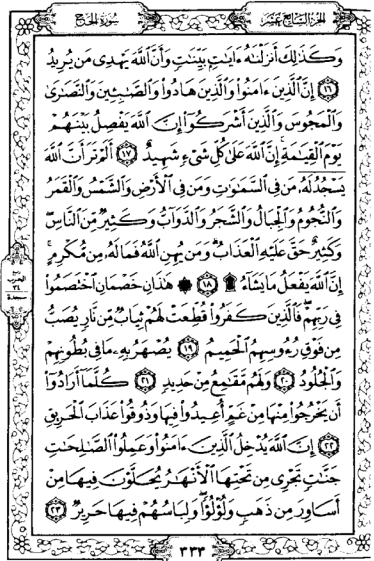 سُورَةُ الحَجّ
الجزء السابع عشر
وَكَذَٰلِكَ أَنزَلْنَٰهُ ءَايَٰتٍۭ بَيِّنَٰتٍ وَأَنَّ ٱللَّهَ يَهْدِى مَن يُرِيدُ
١٦ إِنَّ ٱلَّذِينَ ءَامَنُوا۟ وَٱلَّذِينَ هَادُوا۟ وَٱلصَّٰبِـِٔينَ وَٱلنَّصَٰرَىٰ
وَٱلْمَجُوسَ وَٱلَّذِينَ أَشْرَكُوٓا۟ إِنَّ ٱللَّهَ يَفْصِلُ بَيْنَهُمْ
يَوْمَ ٱلْقِيَٰمَةِ إِنَّ ٱللَّهَ عَلَىٰ كُلِّ شَىْءٍ شَهِيدٌ ١٧ أَلَمْ تَرَ أَنَّ ٱللَّهَ
يَسْجُدُ لَهُۥ مَن فِى ٱلسَّمَٰوَٰتِ وَمَن فِى ٱلْأَرْضِ وَٱلشَّمْسُ وَٱلْقَمَرُ
وَٱلنُّجُومُ وَٱلْجِبَالُ وَٱلشَّجَرُ وَٱلدَّوَآبُّ وَكَثِيرٌ مِّنَ ٱلنَّاسِ
وَكَثِيرٌ حَقَّ عَلَيْهِ ٱلْعَذَابُ وَمَن يُهِنِ ٱللَّهُ فَمَا لَهُۥ مِن مُّكْرِمٍ
إِنَّ ٱللَّهَ يَفْعَلُ مَا يَشَآءُ ۩ ١٨ ۞ هَٰذَانِ خَصْمَانِ ٱخْتَصَمُوا۟
فِى رَبِّهِمْ فَٱلَّذِينَ كَفَرُوا۟ قُطِّعَتْ لَهُمْ ثِيَابٌ مِّن نَّارٍ يُصَبُّ
مِن فَوْقِ رُءُوسِهِمُ ٱلْحَمِيمُ ١٩ يُصْهَرُ بِهِۦ مَا فِى بُطُونِهِمْ
وَٱلْجُلُودُ ٢٠ وَلَهُم مَّقَٰمِعُ مِنْ حَدِيدٍ ٢١ كُلَّمَآ أَرَادُوٓا۟
أَن يَخْرُجُوا۟ مِنْهَا مِنْ غَمٍّ أُعِيدُوا۟ فِيهَا وَذُوقُوا۟ عَذَابَ ٱلْحَرِيقِ
٢٢ إِنَّ ٱللَّهَ يُدْخِلُ ٱلَّذِينَ ءَامَنُوا۟ وَعَمِلُوا۟ ٱلصَّٰلِحَٰتِ
جَنَّٰتٍ تَجْرِى مِن تَحْتِهَا ٱلْأَنْهَٰرُ يُحَلَّوْنَ فِيهَا مِنْ
أَسَاوِرَ مِن ذَهَبٍ وَلُؤْلُؤًا وَلِبَاسُهُمْ فِيهَا حَرِيرٌ ٢٣
٣٣٤